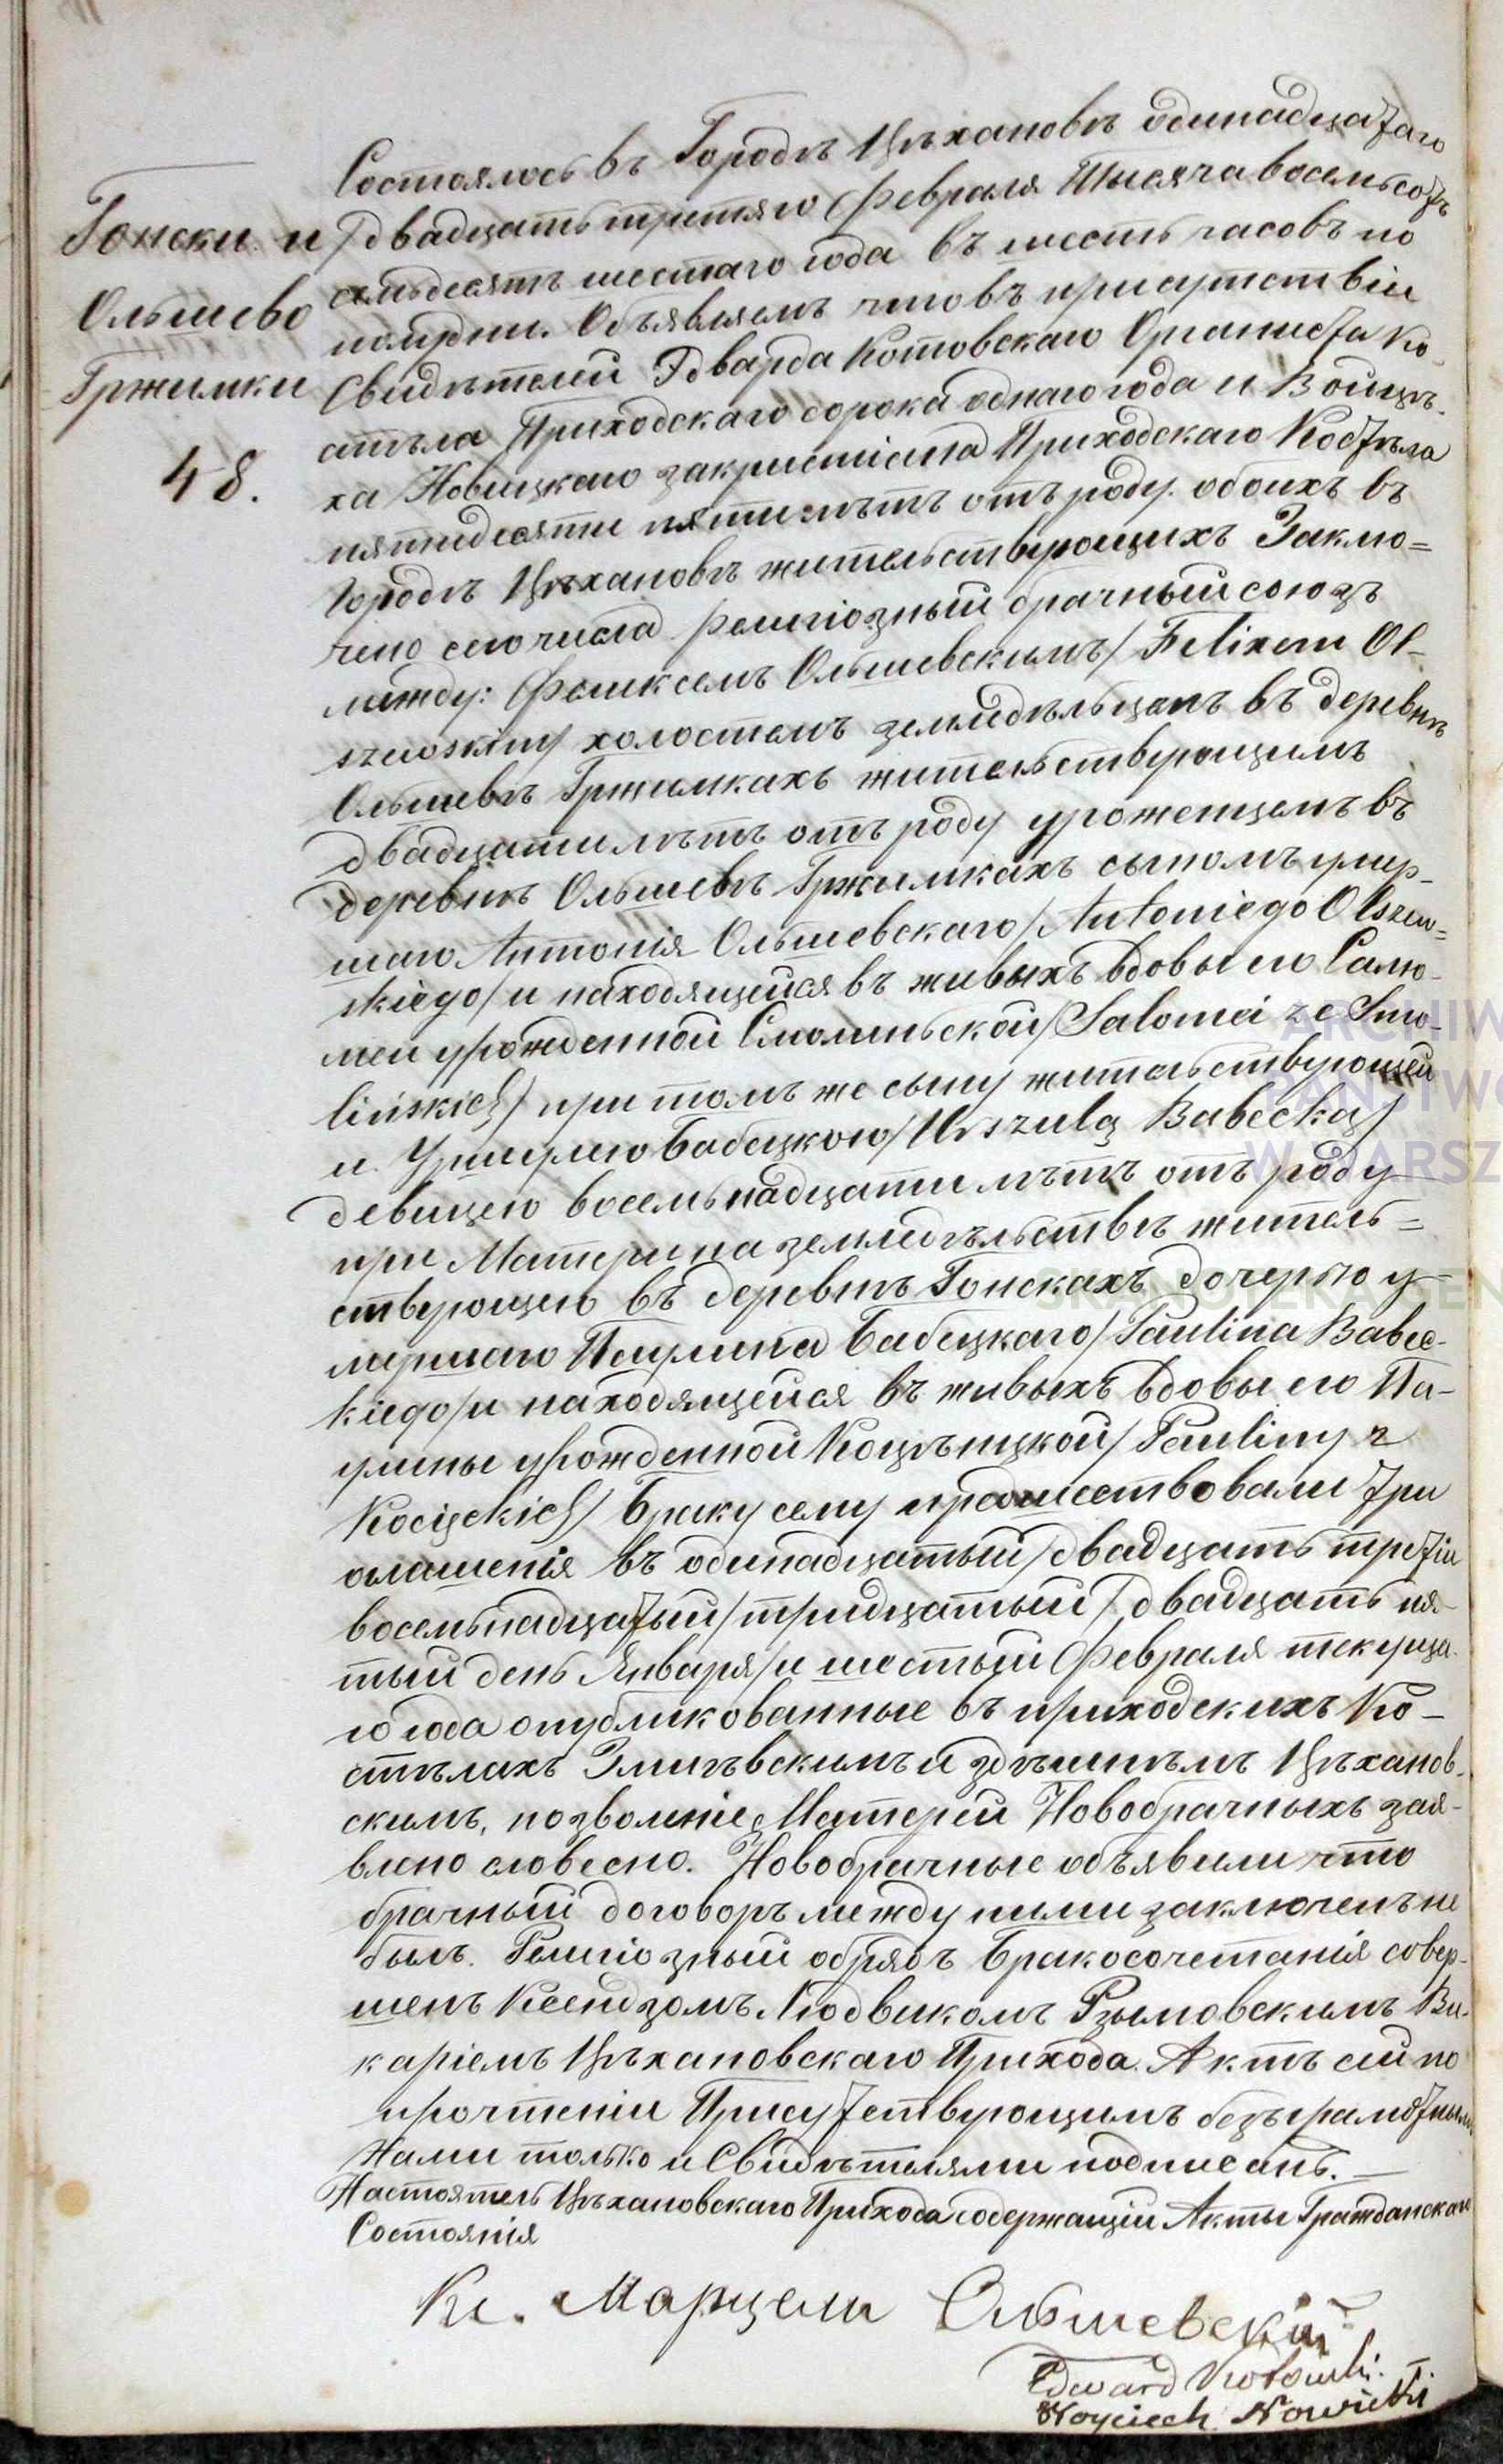 Гонски и
Ольшево
Гржимки
48.
Состоялось въ Городѣ Цѣхановѣ одинадцатаго
/двадцать третяго Февраля Тысяча восемьсотъ
семьдесятъ шестаго года въ шесть часовъ по
полудни. Объявляемъ что въ присутствіи
Свидѣтелей Эдварда Котовскаго Органиста Ко-
стѣла Приходскаго сорока однаго года и Войцѣ-
ха Новицкаго закристіана Приходскаго Костѣла
пятидесяти пяти лѣтъ отъ роду обоихъ въ
Городѣ Цѣхановѣ жительствующихъ Заклю=
чено сего числа религіозный брачный союзъ
между: Феликсемъ Ольшевскимъ/ Felixem Ol-
szewskim/ холостемъ земледѣльцемъ въ деревнѣ
Ольшевѣ Гржимкахъ жительствующимъ
двадцати лѣтъ отъ роду уроженцемъ въ
деревнѣ Ольшевѣ Гржимкахъ сыномъ умер-
шаго Антонія Ольшевскаго/ Antoniego Olszew=
skiego/ и находящейся въ живыхъ вдовы его Салю-
меи урожденной Смолиньской/ Salomei ze Smo-
lińskich/ при томъ же сыну жительствующей
и Уршулею Бабецкою/ Urszulą Babecką/
девицею восемьнадцати лѣтъ отъ роду
при Матери на земледѣльствѣ житель=
ствующею въ деревнѣ Гонскахъ дочерью у-
мершаго Паулина Бабецкаго/ Paulina Babec-
kiego/ и находящейся въ живыхъ вдовы его Па-
улины урожденной Коцѣнцкой/ Pauliny z
Kocięckich/ Браку сему предшествовали три
оглашенія въ одинадцатый/ двадцать третіи
восемьнадцатый/ тридцатый/ двадцать пя-
тый день Января/ и шестый Февраля текуща-
го года опубликованные въ приходскихъ Ко-
стѣлахъ и здѣшнѣмъ Цѣханов-
скимъ, позволніе Матерей Новобрачныхъ зая-
влено словесно. Новобрачные объявили что
брачный договоръ между ними заключенъ не
былъ. Религіозный обрядъ Бракосочетанія совер-
шенъ Ксендзомъ Людвикомъ Рзымовскимъ Ви-
каріемъ Цѣхановскаго Прихода. Актъ сей по
прочтеніи Присутствующимъ безъграмотнымъ
Нами только и Свидѣтелями подписанъ. —
Настоятель Цѣхановскаго Прихода содержащіи Акты Гражданскаго
Состоянія
Кс. Марцели Ольшевскій
Edward Kotowski. —
Woyciech Nowicki